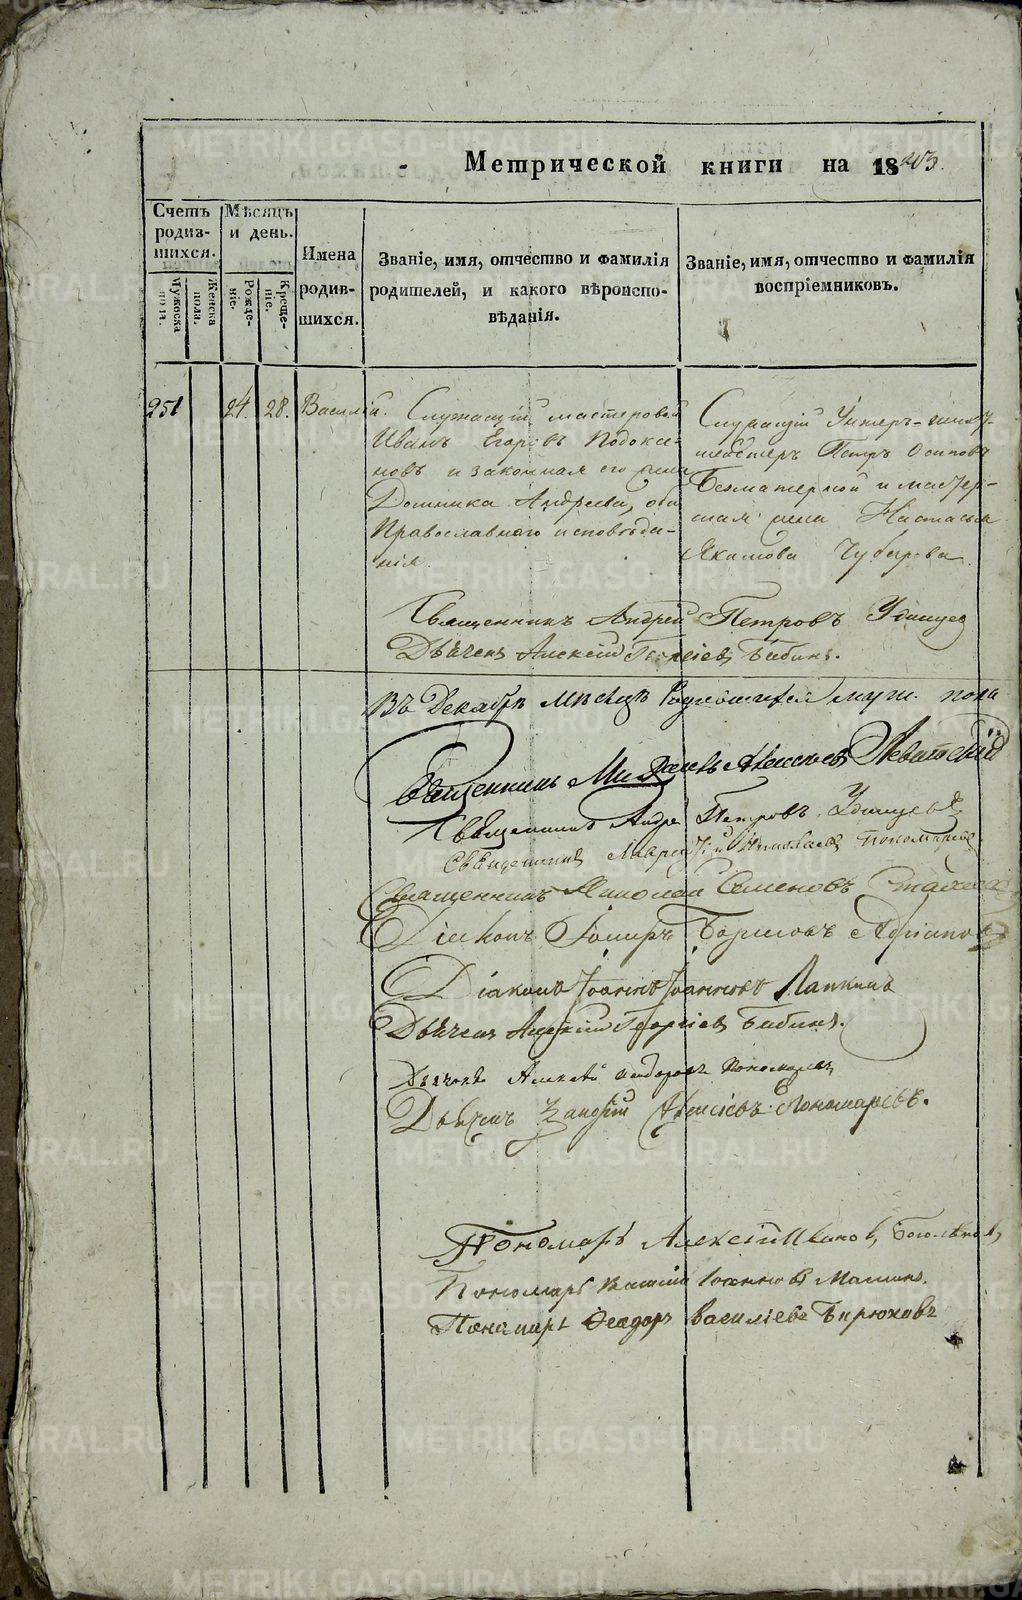 Метрической книги на 1843.
Счетъ родив-
шихся.
Мѣсяцъ
и день.
Имена
родив-
шихся.
Званіе, имя, отчество и фамилія
родителей, и какого вѣроиспо-
вѣданія.
Званіе, имя, отчество и фамилія
воспріемниковъ.
Мужеска
пола.
Женска
пола.
Рожде-
ніе.
Креще-
ніе.
251 24. 28. Василій.
Служащій мастеровой
Иванъ Егоровъ
новъ и законная его жена
Домника Андреева, оба
Православнаго исповѣда-
нія.
Служащій Унтеръ-
мейстеръ Петръ Осиповъ
Безматерной и мастер-
ская жена Настасья
Якимова Чубарова.
Священникъ Андрей Петровъ Удинцев
Дьячекъ Алексій Георгіевъ Бабинъ.
Въ Декабрѣ мѣсяцѣ муж. пола
Священникъ Михаилъ Алексѣевъ Левитскій
Священникъ Андрей Петровъ Удинцевъ
Священникъ Николаевъ Пономаревъ
Священникъ Николай Семеновъ
Діаконъ Борисовъ Адріановъ
Діаконъ Іоаннъ Іоанновъ Лапкинъ
Дьячекъ Алексій Георгіевъ Бабинъ.
Дьячекъ Алексѣй Пономаревъ
Дьячекъ Алексіевъ Пономаревъ.
Пономарь Алексій Ивановъ Боголѣповъ,
Пономарь Василій Іоанновъ Маминъ.
Пономарь Феодоръ Василіевъ Бирюковъ
METRIKI.GASO-URAL.RU